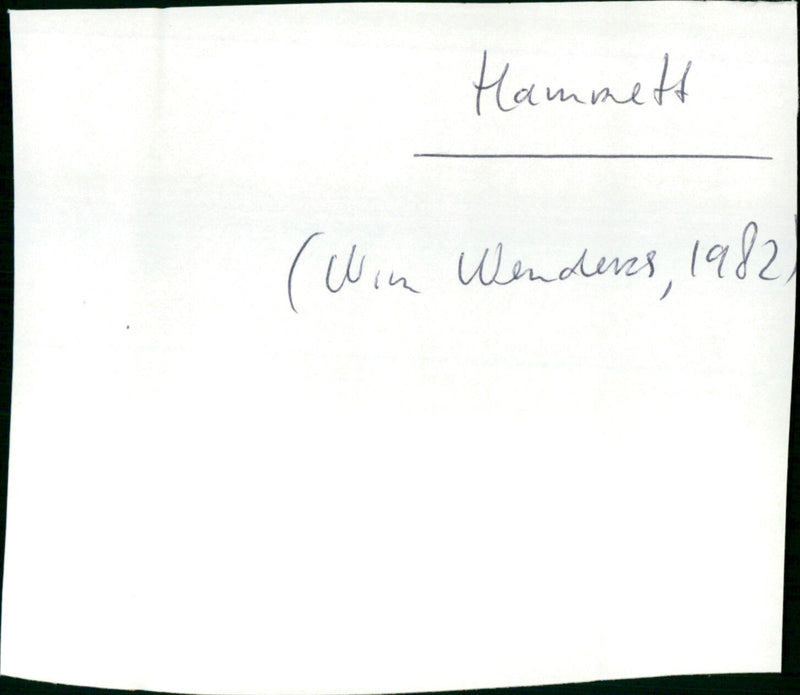 Hammett
(Wim Wenders, 1982)